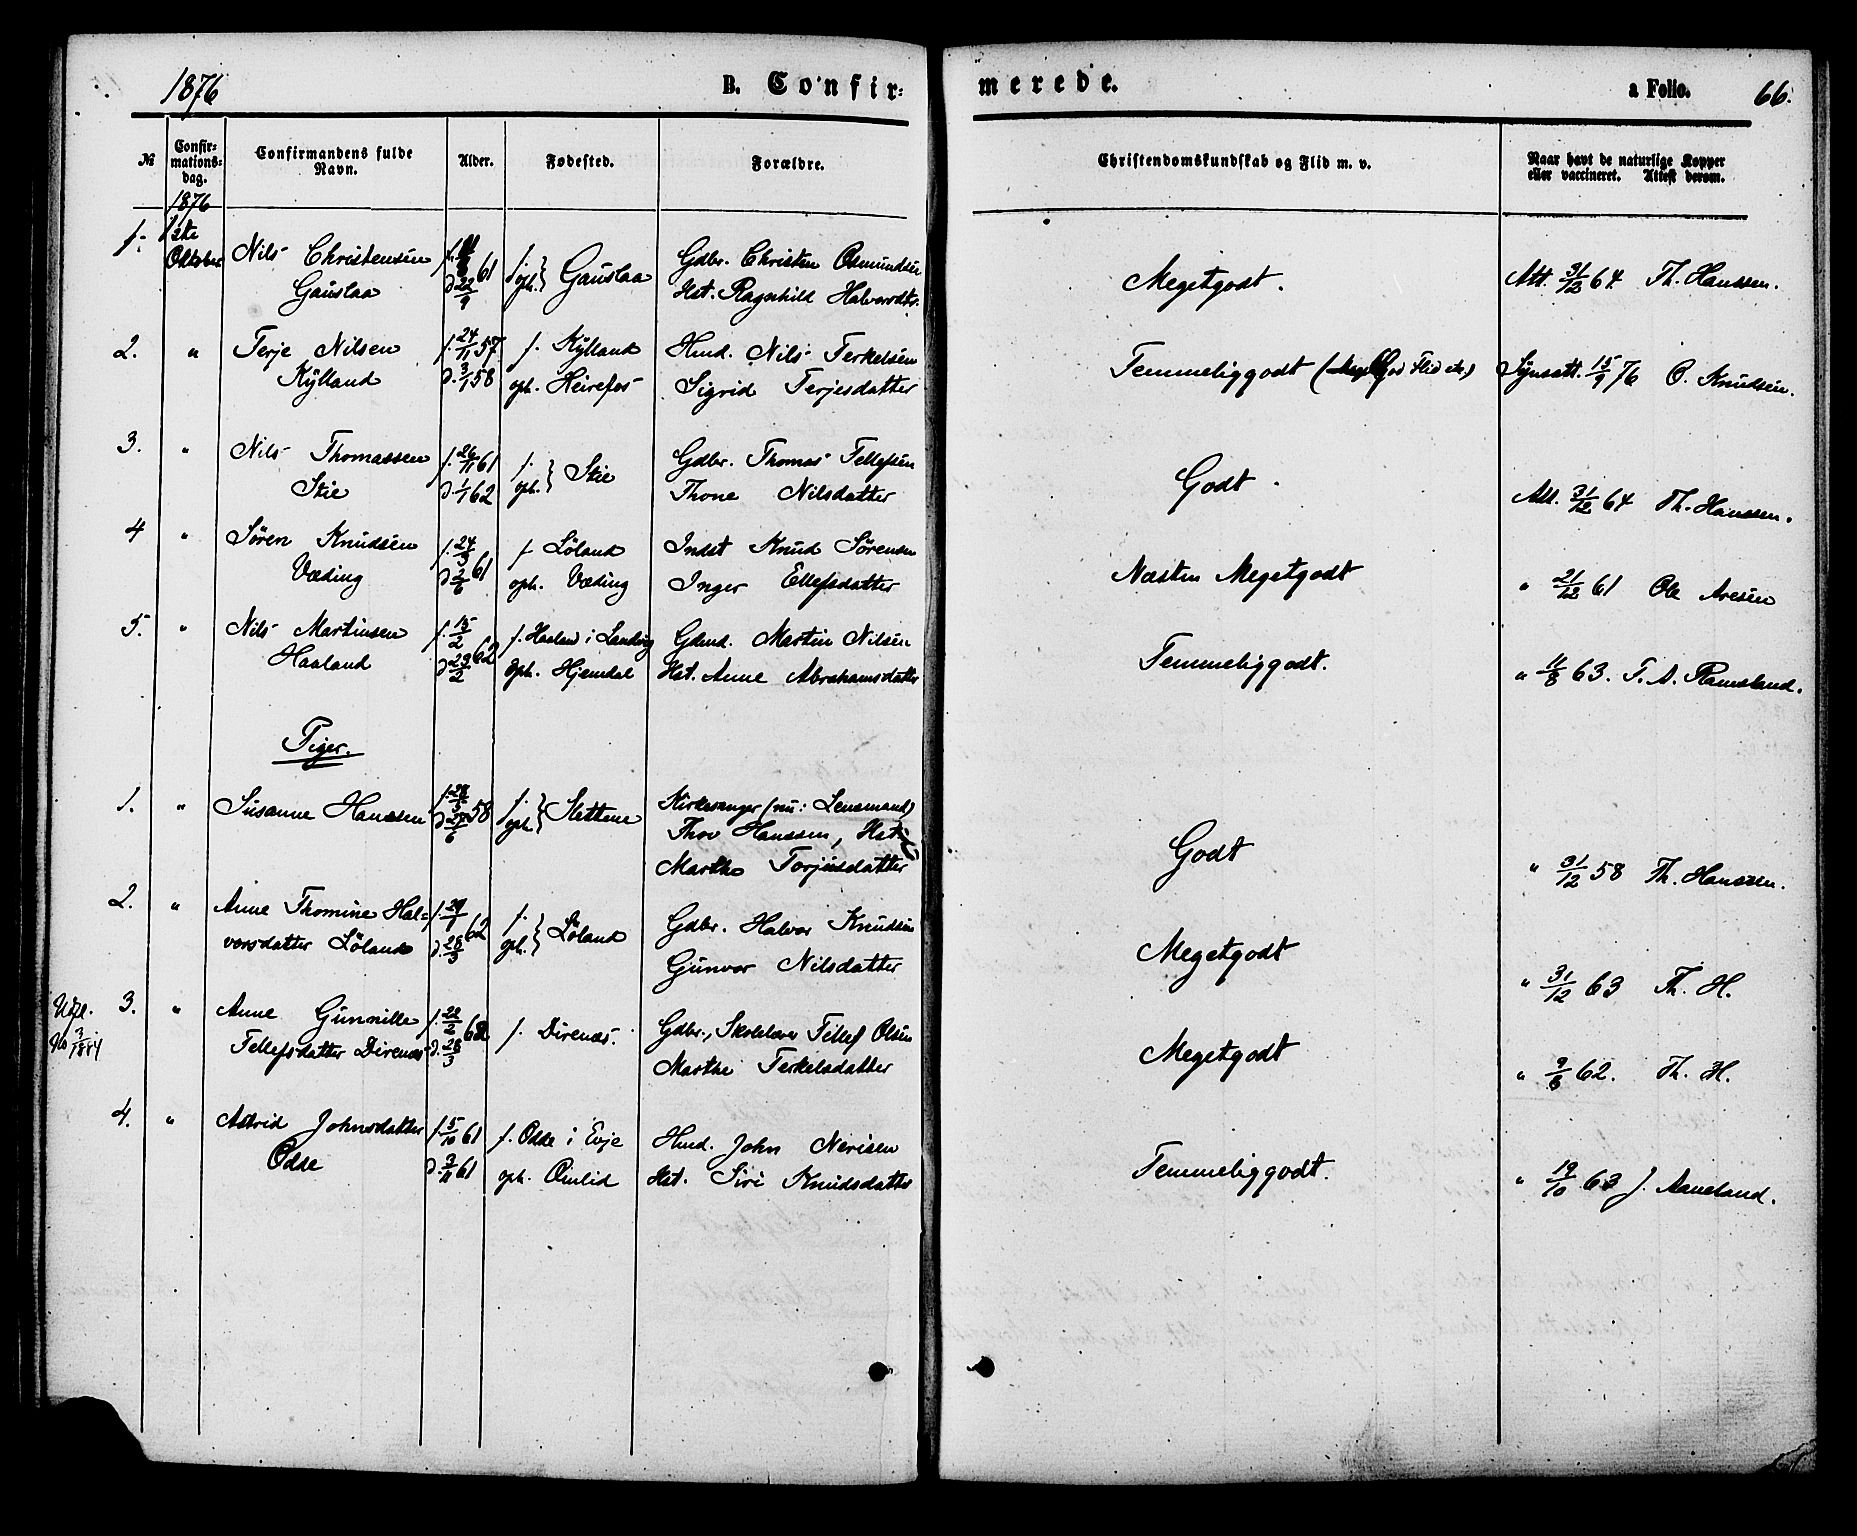 1876
B. Confir=
merede.
a Folio. 66.
№
Confir-
mations-
dag.
Confirmandens fulde
Navn.
Alder.
Fødested.
Forældre.
Christendomskundskab og Flid m. v.
Naar havt de naturlige Kopper
eller vaccineret. Attest derom.
1876
1. 1ste Oktober Nils Christensen f. 61 f. Gdbr. Christen Osmundsen
Gauslaa d. 22/9 oph. } Gauslaa Hst. Ragnhild Halvorsdtr. Megetgodt. Att. 31/12 64 Th. Hanssen.
2. " Terje Nilsen f. 24/11 57 f. Kylland Hmd. Nils Terkelsen
Kylland d. 3/1 58 oph. Heirefos Sigrid Terjesdatter Temmeliggodt ( God Flid etc.) Synsatt. 15/9 76 O. Knudsen.
3. " Nils Thomassen f. 26/11 61 f. Gdbr. Thomas Tellefsen
Skie d. 1/1 62 oph. } Skie Thone Nilsdatter Godt. Att. 31/12 64 Th. Hanssen.
4 " Søren Knudsen f. 24/3 f. Løland Indst Knud Sørensen
Væding d. 2/6 61 oph. Væding Inger Ellefsdatter Næsten Megetgodt " 21/12 61 Ole Aresen
5. " Nils Martinsen f. 15/2 f. Haaland i Landvig Gdmd. Martin Nilsen
Haaland d. 23/2 62 oph. Hjemdal Hst. Anne Abrahamsdatter Temmeliggodt. " 11/8 63. T. A. Ramsland.
Piger.
1. " Susanne Hanssen f. 28/5 58 f. Kirkesanger (nu: Lensmand)
d. 27/6 oph. } Slettene Thov Hanssen, Hst.
Marthe Torjusdatter Godt " 31/12 58 Th. Hanssen.
2. " Anne Thomine Hal= f. 29/1 62 f. Gdbr. Halvor Knudsen
vorsdatter Løland d. 28/3 oph. } Løland Gunvor Nilsdatter Megetgodt " 31/12 63 Th. H.
3. " Anne Gunnille f. 22/2 62 f. Direnæs. Gdbr., Skolelærer Tellef Olsen
Udfl. No 3/1884 Tellefsdatter Direnæs d. 28/3 Marthe Terkelsdatter Megetgodt " 9/8 62. Th. H.
4. " Astrid Johnsdatter f. 5/10 61 f. Odde i Evje Hmd. John Nerisen
Odde d. 3/11 61 oph. Omlid Hst. Siri Knudsdatter Temmeliggodt. " 19/10 63 J. Aaneland.